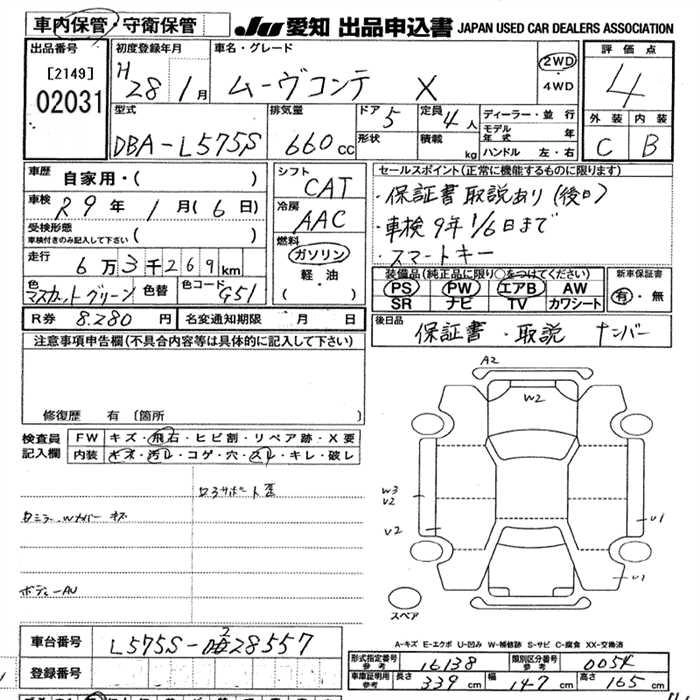 車内保管・守衛保管 JU 愛知 出品申込書 JAPAN USED CAR DEALERS ASSOCIATION
出品番号 初度登録年月 車名・グレード 評価点
[2149] H 28年 1月 ムーヴコンテ X 2WD・4WD 4
02031
型式 排気量 ドア 定員 ディーラー・並行 外装 内装
DBA-L575S 660cc 5 4人 モデル年式 年 C B
形状 積載 kg ハンドル 左・右
車歴 自家用・( ) シフト CAT セールスポイント(正常に機能するものに限ります)
車検 R9年 1月(6日) 冷房 AAC ・保証書 取説あり(後日)
受検形態 車検付きのみ記入して下さい ( ) 燃料 ・車検 9年 1/6日まで
走行 6万3千269km ガソリン ・スマートキー
軽・油 装備品(純正品に限り○をつけてください) 新車保証書
色 マスカットグリーン 色替 色コード G51 ( ) PS PW エアB AW 有・無
SR ナビ TV カワシート
R券 8.280円 名変通知期限 月 日 後日品 保証書・取説 ナンバー
注意事項申告欄(不具合内容等は具体的に記入して下さい)
修復歴 有 〔箇所 〕
検査員記入欄 FW キズ・飛石・ヒビ割・リペア跡・X要
内装 キズ・汚レ・コゲ・穴・スレ・キレ・破レ
A2
W2
W3
V2
V2
U1
U1
スペア
A-キズ E-エクボ U-凹み W-補修跡 S-サビ C-腐食 XX-交換済
車台番号 L575S-0228557
登録番号
形式指定番号 参考 16138 類別区分番号 参考 0054
車庫証明用 参考 長さ 339cm 幅 147cm 高さ 165cm